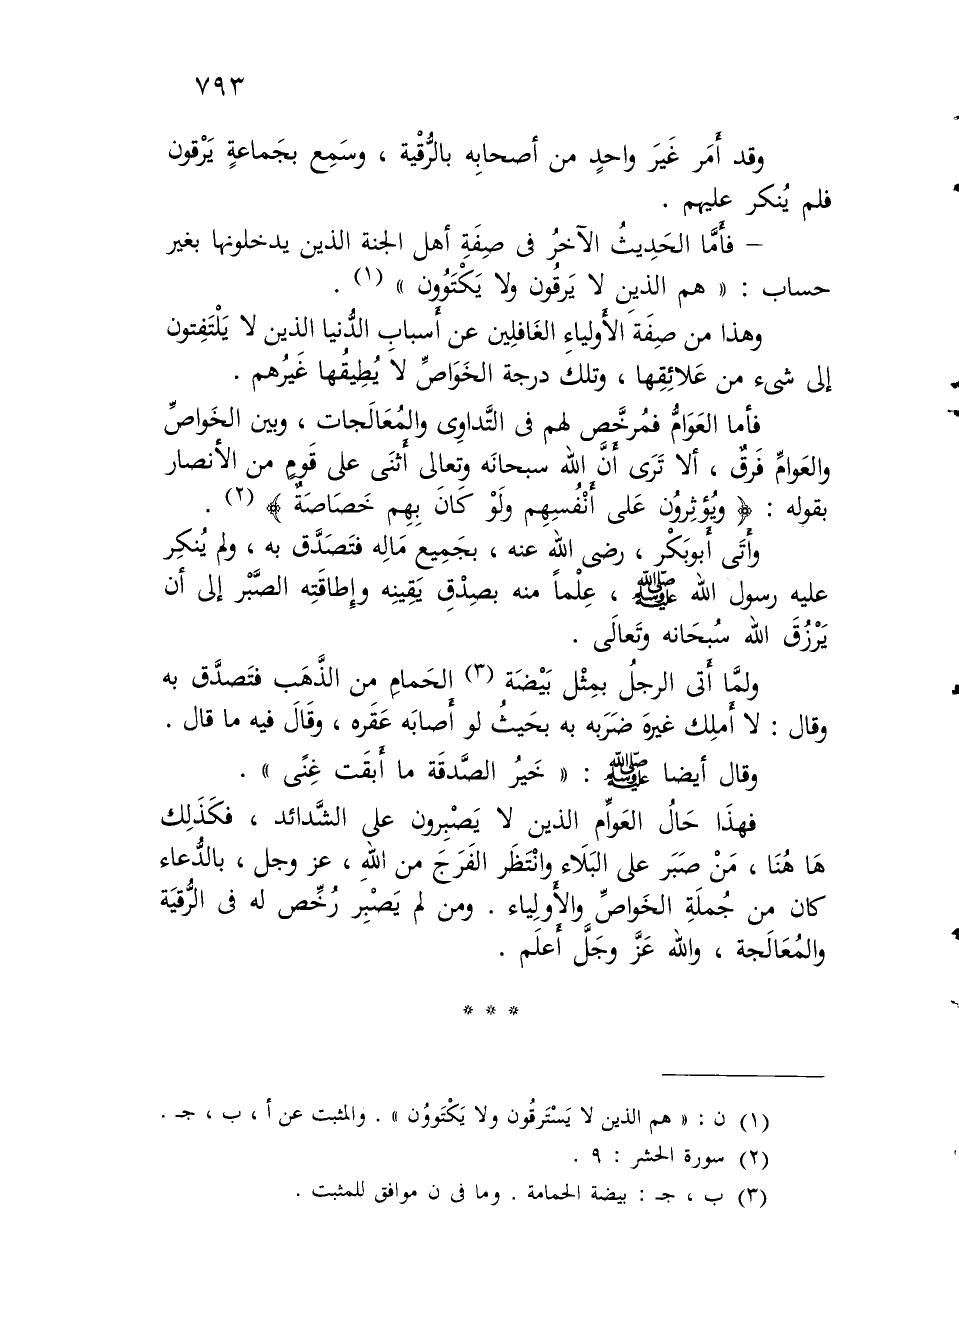 ٧٩٣
وقد أَمَر غَيرَ واحدٍ من أصحابِه بالرُّقْية ، وسَمِع بجَماعةٍ يَرْقون
فلم يُنكر عليهم .
– فأَمَّا الحَدِيثُ الآخرُ فى صِفَةِ أهل الجنة الذين يدخلونها بغير
حساب : « هم الذين لا يَرقُون ولا يَكْتَوُون » (١) .
وهذا من صِفَة الأَولياءِ الغَافلِين عن أَسبابِ الدُّنيا الذين لا يَلْتَفِتون
إلى شىء من عَلائِقِها ، وتلك درجة الخَوَاصِّ لا يُطِيقُها غَيرُهم .
فأما العَوَامُّ فمُرخَّص لهم فى التَّداوِى والمُعَالَجات ، وبين الخَواصِّ
والعَوامِّ فَرقٌ ، ألا تَرَى أَنَّ الله سبحانَه وتعالى أَثنَى على قَومٍ من الأنصار
بقوله : ﴿ ويُؤثِرُون عَلى أَنْفُسِهِم ولَوْ كَانَ بِهِم خَصَاصَةٌ ﴾ (٢) .
وأَتَى أَبوبَكْر ، رضى الله عنه ، بجَمِيع مَالِه فتَصَدَّق به ، ولم يُنكِر
عليه رسول الله ﷺ ، عِلْماً منه بصِدْقِ يَقِينِه وإِطاقَتِه الصَّبْر إلى أن
يَرْزُقَ الله سُبحَانه وتَعالَى .
ولمَّا أَتى الرجلُ بمِثْل بَيْضَة (٣) الحَمامِ من الذَّهَب فتَصدَّق به
وقال : لا أَملِك غيرهَ ضَرَبه به بحَيثُ لو أَصابَه عَقَره ، وقَالَ فيه ما قال .
وقال أيضا ﷺ : « خَيرُ الصَّدقَة ما أَبقَت غِنًى » .
فهذَا حَالُ العَوامِّ الذين لا يَصْبِرون على الشَّدائد ، فكَذَلِك
هَا هُنَا ، مَنْ صَبَر على البَلَاء وانْتَظَر الفَرَجَ من اللهِ ، عز وجل ، بالدُّعاء
كان من جُملَةِ الخَواصِّ والأَولِياء . ومن لم يَصْبِر رُخِّص له فى الرُّقيَة
والمُعَالَجة ، والله عَزَّ وجَلَّ أَعلَم .
* * *
(١) ن : « هم الذين لا يَسْتَرقُون ولا يَكْتَووُن » . والمثبت عن أ ، ب ، جـ .
(٢) سورة الحشر : ٩ .
(٣) ب ، جـ : بيضة الحمامة . وما فى ن موافق للمثبت .